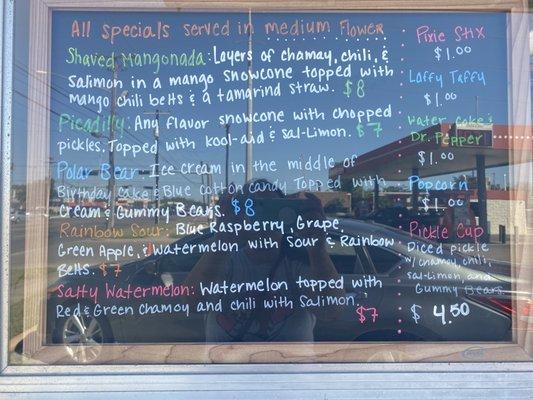 All specials served in medium flower
Shaved Mangonada: Layers of chamay, chili, &
salimon in a mango snowcone topped with
mango chili belts & a tamarind straw. $8
Picadilly: Any flavor snowcone with chopped
pickles. Topped with kool-aid & sal-limon. $7
Polar Bear: Ice cream in the middle of
Birthday Cake & Blue Cotton Candy Topped with
Cream & Gummy Bears. $8
Rainbow Sour: Blue Raspberry, Grape,
Green Apple, & Watermelon with Sour & Rainbow
Belts. $7
Salty Watermelon: Watermelon topped with
Red & Green chamoy and chili with Salimon.
$7
Pixie Stix
$1.00
Laffy Taffy
$1.00
Water, Coke &
Dr. Pepper
$1.00
Popcorn
$1.00
Pickle Cup
Diced pickle
w/ chamay, chili,
sal-limon, and
Gummy Bears
$4.50